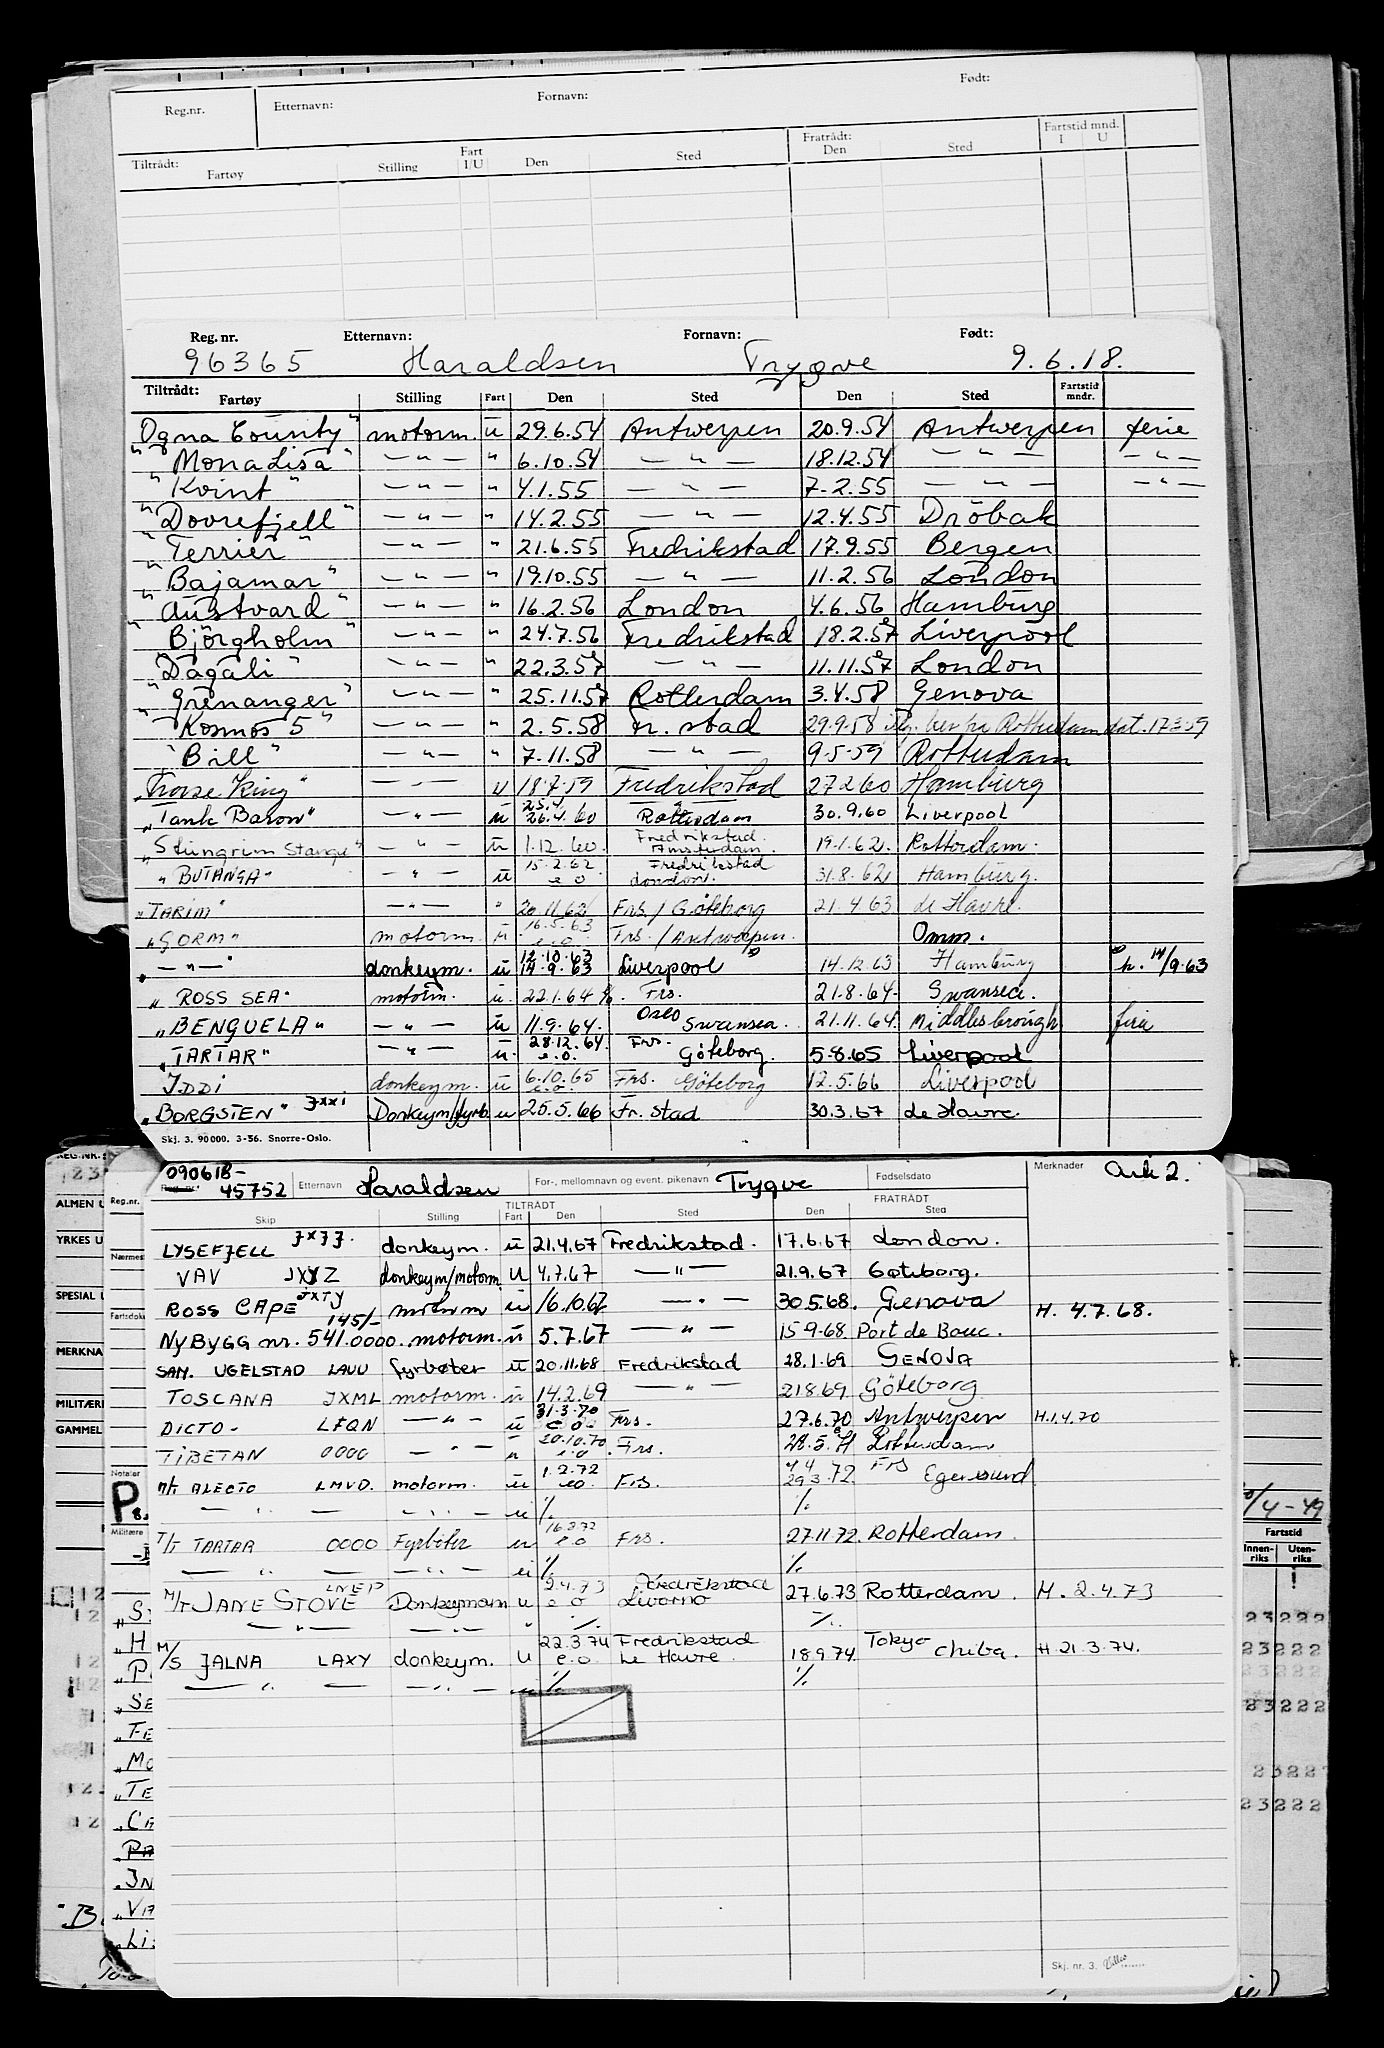 Reg.nr. Etternavn: Fornavn: Født:
Tiltrådt: Fartøy Stilling Fart I/U Den Sted Fratrådt: Den Sted Fartstid mnd. I U
Reg. nr. Etternavn: Fornavn: Født:
96365 Haraldsen Trygve 9.6.18.
Tiltrådt: Fartøy Stilling Fart Den Sted Den Sted Fartstid mndr.
"Ogna County" motorm. u 29.6.54 Antwerpen 20.9.54 Antwerpen ferie
"Mona Lisa" — " — " 6.10.54 — " — 18.12.54 — " — — " —
"Kvint" — " — " 4.1.55 — " — 7.2.55 — " — — " —
"Dovrefjell" — " — " 14.2.55 — " — 12.4.55 Dröbak
"Terrier" — " — " 21.6.55 Fredrikstad 17.9.55 Bergen
"Bajamar" — " — " 19.10.55 — " — 11.2.56 London
"Austvard" — " — " 16.2.56 London 4.6.56 Hamburg
"Björgholm" — " — " 24.7.56 Fredrikstad 18.2.57 Liverpool
"Dagali" — " — " 22.3.57 — " — 11.11.57 London
"Grenanger" — " — " 25.11.57 Rotterdam 3.4.58 Genova
"Kosmos 5" — " — " 2.5.58 Fr. stad 29.9.58 Rotterdam dat. 17.3.59
"Bill" — " — " 7.11.58 — " — 9.5.59 Rotterdam
"Norse King" — " — u 18.7.59 Fredrikstad 27.2.60 Hamburg
"Tank Baron" — " — u 25.4. 26.4.60 Rotterdam 30.9.60 Liverpool
"Steingrim Stange" — " — u 1.12.60. Fredrikstad. Amsterdam. 19.1.62. Rotterdam.
"BUTANGA" — " — u 15.2.62 e.o Fredrikstad London. 31.8.62 Hamburg.
"TARIM" — " — " 20.11.62 Frs. / Göteborg 21.4.63 le Havre.
"GORM" motorm. u 16.5.63 e.o. Frs. / Antwerpen. Omm.
" — " — " donkeym. u 12.10.63 14.9.63 Liverpool 14.12.63 Hamburg h. 14/9.63
"ROSS SEA" motorm. u. 22.1.64 Frs. 21.8.64. Swansea.
"BENGUELA" — " — u 11.9.64. Oslo Swansea. 21.11.64. Middlesbrough ferie
"TARTAR" — " — u. 28.12.64. e.o. Frs. Göteborg. 5.8.65 Liverpool
IDDI donkeym. u 6.10.65 e.o. Frs. Göteborg 12.5.66 Liverpool
"BORGSTEN" JXXI Donkeym/fyrb u 25.5.66 Fr. Stad 30.3.67 le Havre
Skj. 3. 90000. 3-56. Snorre-Oslo.
090618-
Reg.nr. 45752 Etternavn Haraldsen For-, mellomnavn og event. pikenavn Trygve Fødselsdato Merknader Ark 2.
TILTRÅDT FRATRÅDT
Skip Stilling Fart Den Sted Den Sted
LYSEFJELL JXJJ. donkeym. u 21.4.67 Fredrikstad. 17.6.67 London.
VAV JXYZ donkeym/motorm u 4.7.67 — " — 21.9.67 Göteborg.
ROSS CAPE JXTY motorm u 16.10.67 — " — 30.5.68. Genova H. 4.7.68.
145/-
NYBYGG nr. 541.0000. motorm. u 5.7.67 — " — 15.9.68 Port de Bouc.
SAM. UGELSTAD LAUU fyrbøter u 20.11.68 Fredrikstad 28.1.69 GENOVA
TOSCANA JXML motorm. u 14.2.69 — " — 21.8.69 Göteborg
DICTO. LFQN — " — u 31.3.70 e o. Frs. 27.6.70 Antwerpen H.1.4.70
TIBETAN 0000 — " — u 20.10.70 e.o. Frs. 28.5.71 Rotterdam
M/T ALECTO LMVD. motorm. u 1.2.72 eo. Frs. 4.4 29.3.72 Frs Egersund
— " — — " — u % %
T/T TARTAR 0000 Fyrbøter u 16.8.72 e.o Frs. 27.11.72. Rotterdam.
— " — — " — u % %
M/T JANE STOVE LNEP Donkeymann u 2.4.73 e o Fredrikstad Livorno 27.6.73 Rotterdam. H. 2.4.73
— " — — " — " % %
M/S JALNA LAXY donkeym. u 22.3.74 e.o. Fredrikstad Le Havre. 18.9.74 Tokyo Chiba. H 21.3.74.
— " — — " — u % %
Skj. nr. 3.
REG.NR.
ALMEN U
YRKES U
SPESIAL
MERKNA
MILITÆR
GAMMEL
Reg.nr.
Nærmes
Fartsdok
Notater
P
Militære
"H
"P
"SE
"FE
"MO
"TE
"CA
"IN
"VI
"LI
/4-49
Fartstid
Innen-riks Uten-riks
23222
23222
23222
23222
23222
23222